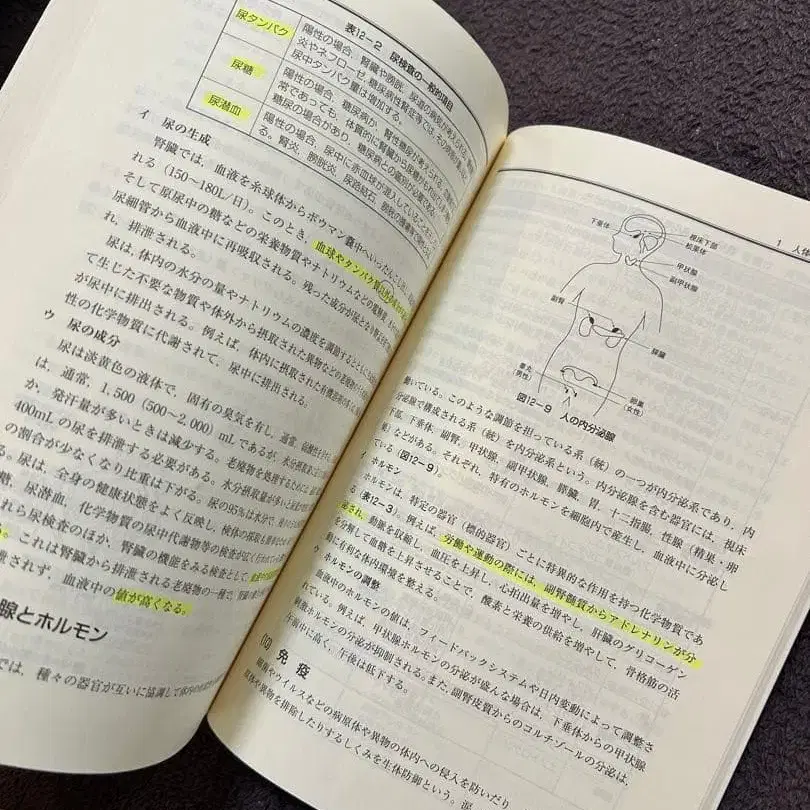 表12-2 尿検査の一般的項目
尿タンパク
陽性の場合、腎臓や膀胱、尿道の病気が考えられる。
炎やネフローゼ、糖尿病性腎症等では、その
尿中タンパク量は増加する。
尿糖
陽性の場合、糖尿病か、腎性糖尿が考えられる。
常であっても、体質的に腎臓から尿糖が
糖尿の場合があり、糖尿病との鑑別が必要である。
尿潜血
陽性の場合、尿中に赤血球が混入している
る。腎炎、膀胱炎、尿路結石、
イ 尿の生成
腎臓では、血液を糸球体からボウマン嚢中へいったん
れる（150〜180L/日）。このとき、血球やタンパク質以外の
そして原尿中の糖などの栄養物質やナトリウムなどの電解質、
尿細管から血液中に再吸収される。残った成分が尿となり
れ、排泄される。
尿は、体内の水分の量やナトリウムの濃度を調節するとともに、
て生じた不要な物質や体外から摂取された異物などの老廃物の
が尿中に排出される。例えば、体内に摂取された有機溶剤の
性の化学物質に代謝されて、尿中に排出される。
ウ 尿の成分
尿は淡黄色の液体で、固有の臭気を有し、通常、弱酸性を
は、通常、1,500（500〜2,000）mLであるが、水分摂取
か、発汗量が多いときは減少する。老廃物を処理するために
400mLの尿を排泄する必要がある。水分摂取量が多いと
の割合が少なくなり比重は下がる。尿の95%は水分で、
る。尿は、全身の健康状態をよく反映し、検体の採取も簡単
糖、尿潜血、化学物質の尿中代謝物等の検査が広く行われている
れら尿検査のほか、腎臓の機能をみる検査として、
る。これは腎臓から排泄される老廃物の一種で、腎臓の
泄されず、血液中の値が高くなる。
腺とホルモン
では、種々の器官が互いに協調して
1 人体
下垂体
視床下部
松果体
甲状腺
副甲状腺
副腎
膵臓
睾丸
（男性）
卵巣
（女性）
図12-9 人の内分泌腺
働いている。このような調節を担っている系（統）の一つが内分泌系であり、内
分泌腺で構成される系（統）を内分泌系という。内分泌腺を含む器官には、視床
下部、下垂体、副腎、甲状腺、副甲状腺、膵臓、胃、十二指腸、性腺（精巣・卵
巣）などがある。それぞれ、特有のホルモンを細胞内で産生し、血液中に分泌し
ている（図12-9）。
イ ホルモン
ホルモンは、特定の器官（標的器官）ごとに特異的な作用を持つ化学物質であ
る（表12-3）。例えば、労働や運動の際には、副腎髄質からアドレナリンが分
泌され、動脈を収縮し、血圧を上昇し、心拍出量を増やし、肝臓のグリコーゲン
を分解して血糖を上昇させることで、酸素と栄養の供給を増やして、骨格筋の活
動に有利な体内環境を整える。
ウ ホルモンの調整
血液中のホルモンの値は、フィードバックシステムや日内変動によって調整さ
れている。例えば、甲状腺ホルモンの分泌が盛んな場合は、下垂体からの甲状腺
刺激ホルモンの分泌が抑制される。また、副腎皮質からのコルチゾールの分泌は、
午前中に高く、午後は低下する。
(10) 免疫
細菌やウイルスなどの病原体や異物の体内への侵入を防いだり
原体や異物を排除したりするしくみを生体防御という。